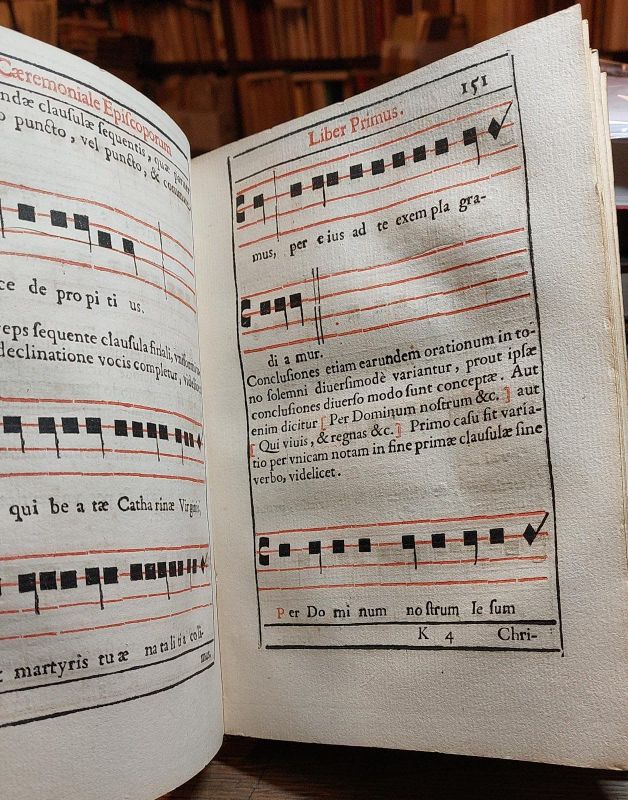 Cæremoniale Episcoporum
ndæ clausulæ sequentis, quæ
o puncto, vel puncto, &
ce de pro pi ti us.
reps sequente clausula finali,
declinatione vocis completur,
qui be a tæ Catha rinæ Virginis,
martyris tu æ na ta li ti a coli-
mus,
151
Liber Primus.
mus, per e ius ad te exem pla gra-
di a mur.
Conclusiones etiam earundem orationum in to-
no solemni diuersimodè variantur, prout ipsæ
conclusiones diuerso modo sunt conceptæ. Aut
enim dicitur [ Per Dominum nostrum &c. ] aut
[ Qui viuis, & regnas &c. ] Primo casu fit varia-
tio per vnicam notam in fine primæ clausulæ sine
verbo, videlicet.
Per Do mi num no strum Ie sum
K 4 Chri-